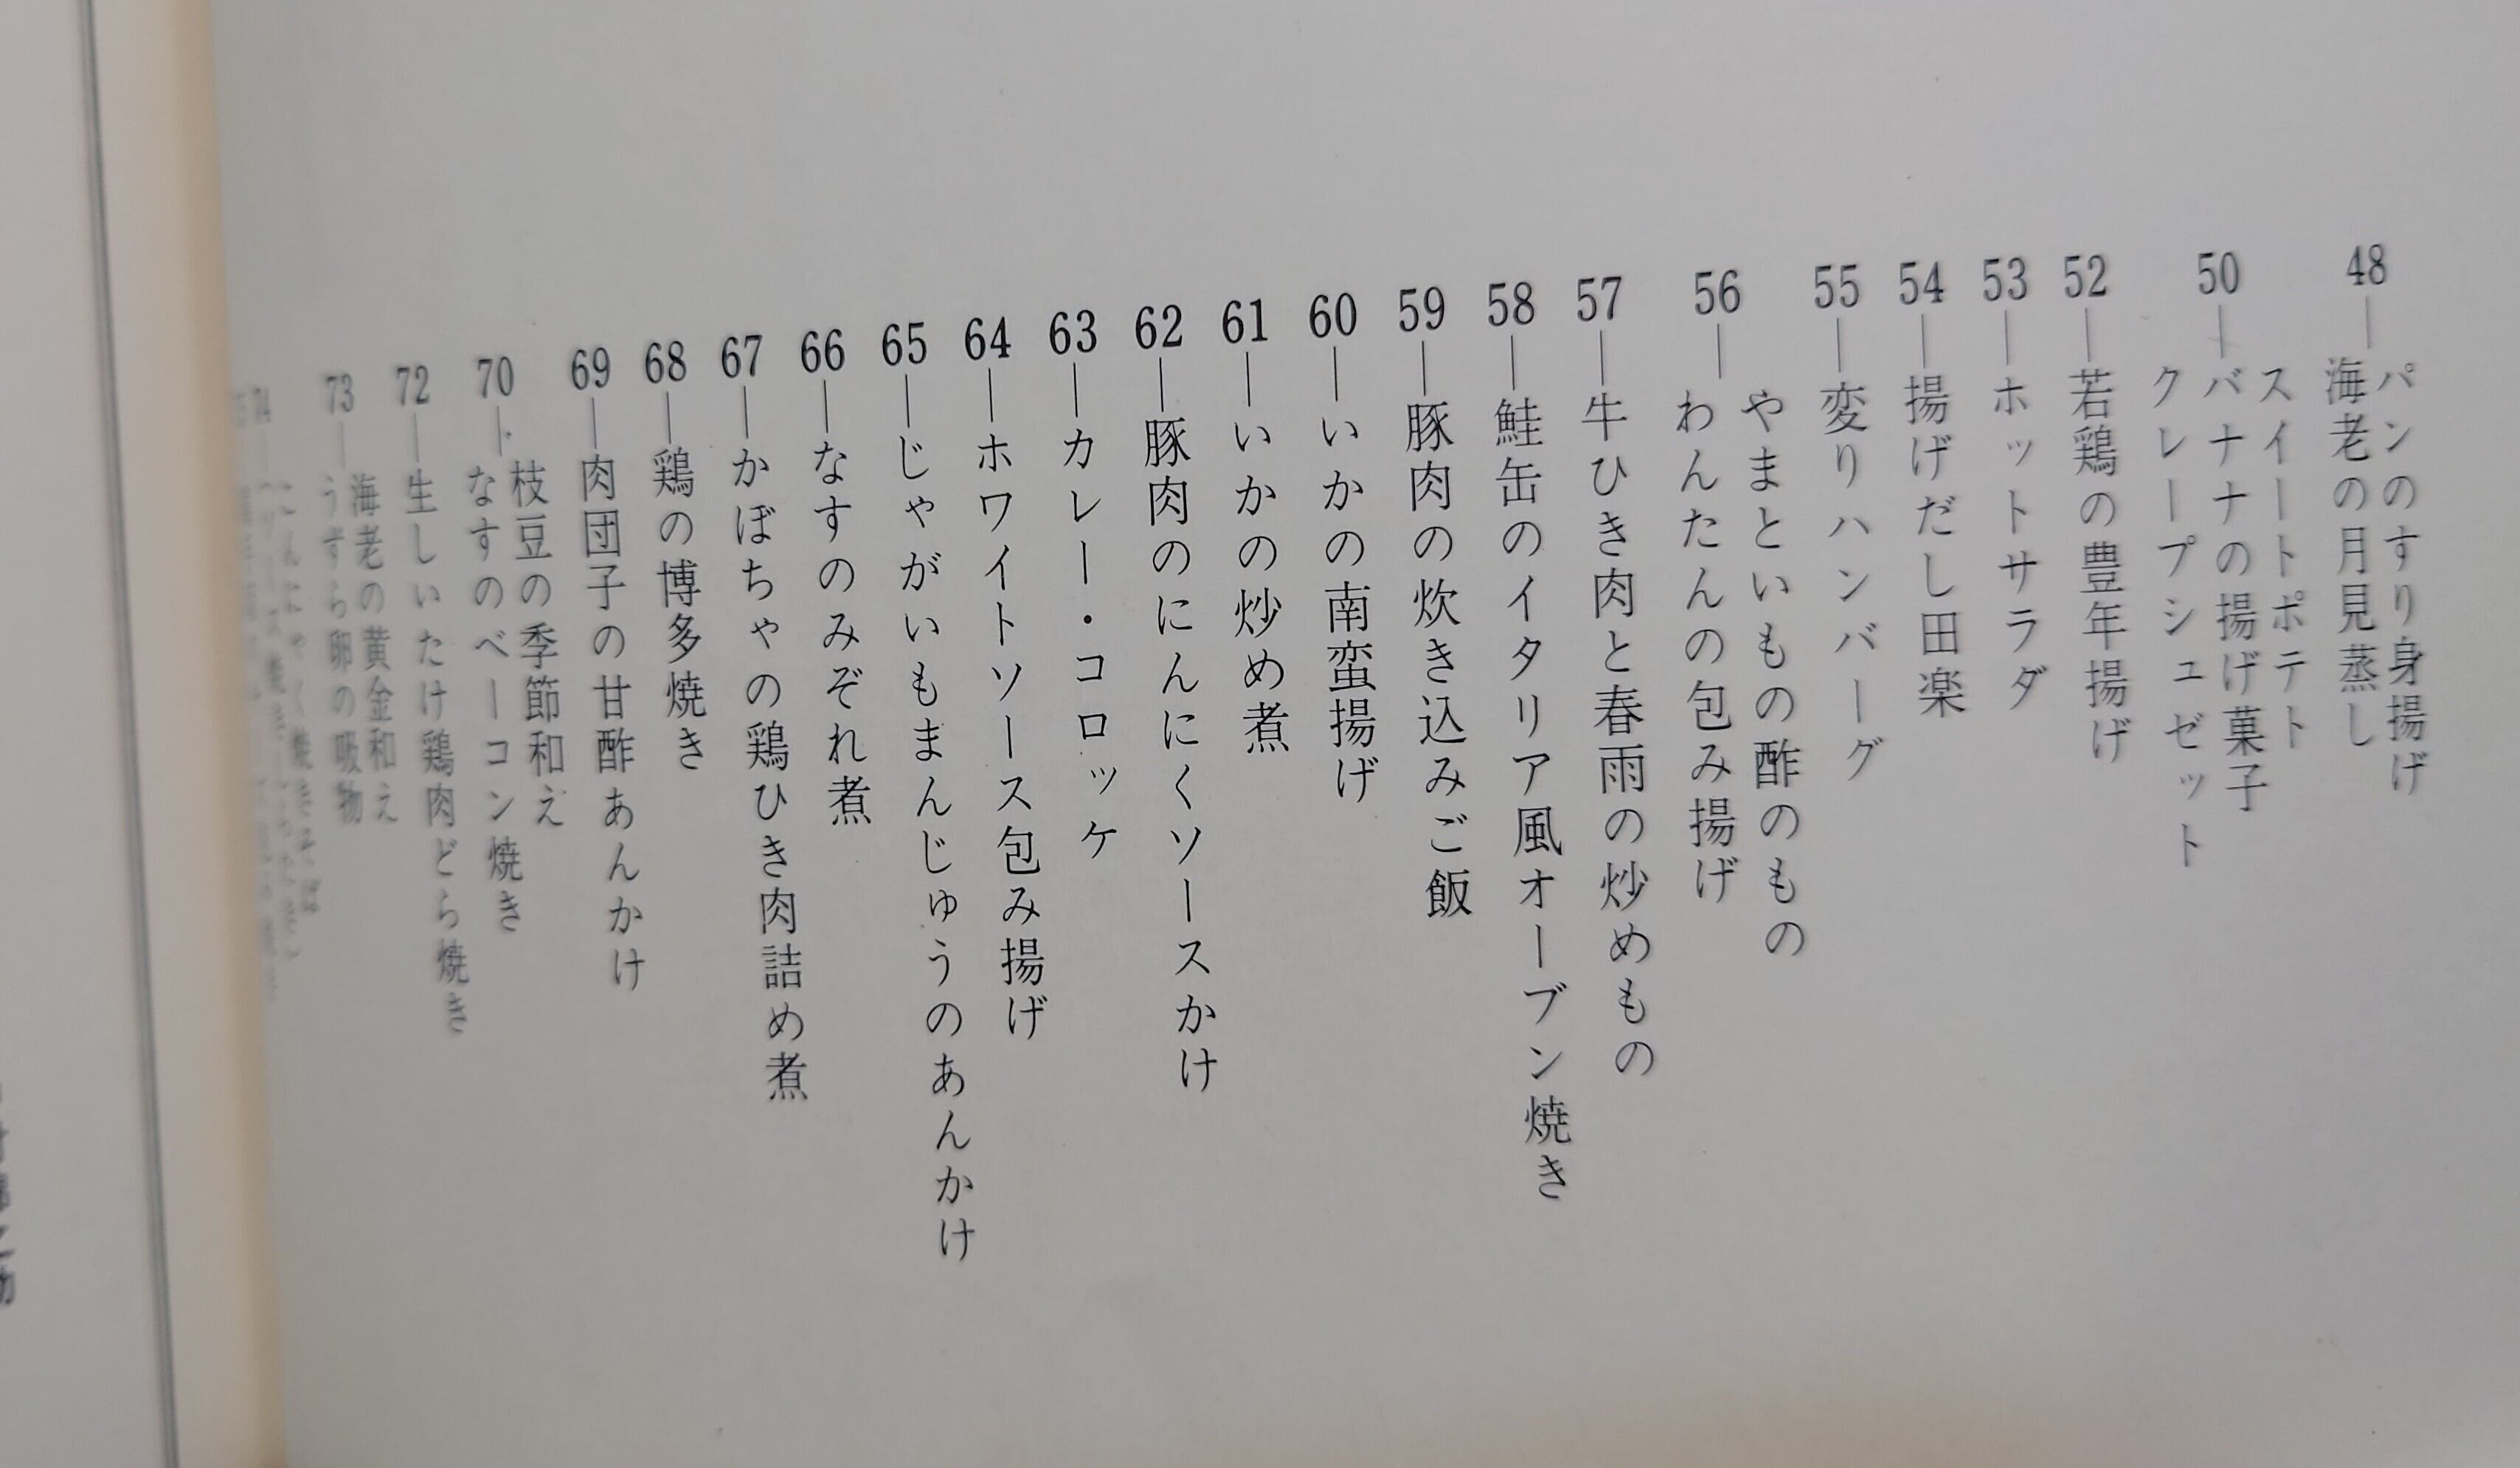 48―パンのすり身揚げ
海老の月見蒸し
50―スイートポテト
バナナの揚げ菓子
クレープシュゼット
52―若鶏の豊年揚げ
53―ホットサラダ
54―揚げだし田楽
55―変りハンバーグ
56―やまといもの酢のもの
わんたんの包み揚げ
57―牛ひき肉と春雨の炒めもの
58―鮭缶のイタリア風オーブン焼き
59―豚肉の炊き込みご飯
60―いかの南蛮揚げ
61―いかの炒め煮
62―豚肉のにんにくソースかけ
63―カレー・コロッケ
64―ホワイトソース包み揚げ
65―じゃがいもまんじゅうのあんかけ
66―なすのみぞれ煮
67―かぼちゃの鶏ひき肉詰め煮
68―鶏の博多焼き
69―肉団子の甘酢あんかけ
70―枝豆の季節和え
なすのベーコン焼き
72―生しいたけ鶏肉どら焼き
73―海老の黄金和え
うずら卵の吸物
74
こんにゃく焼きそば